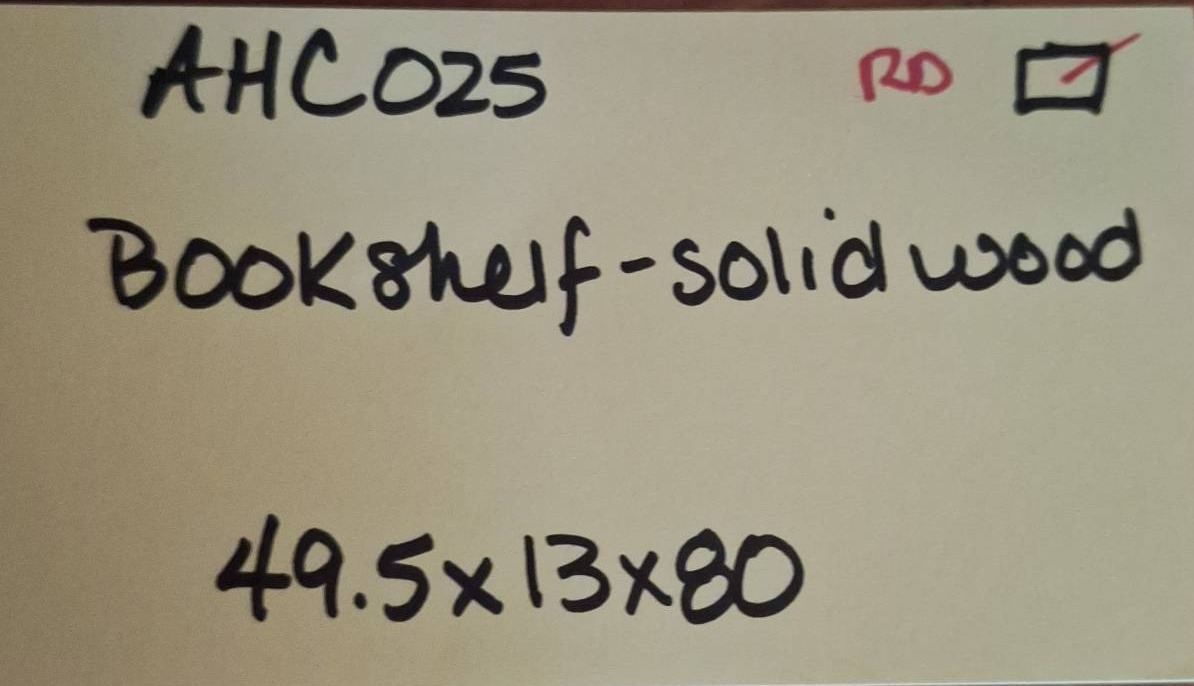 AHC025 RD
Bookshelf-solid wood
49.5x13x80